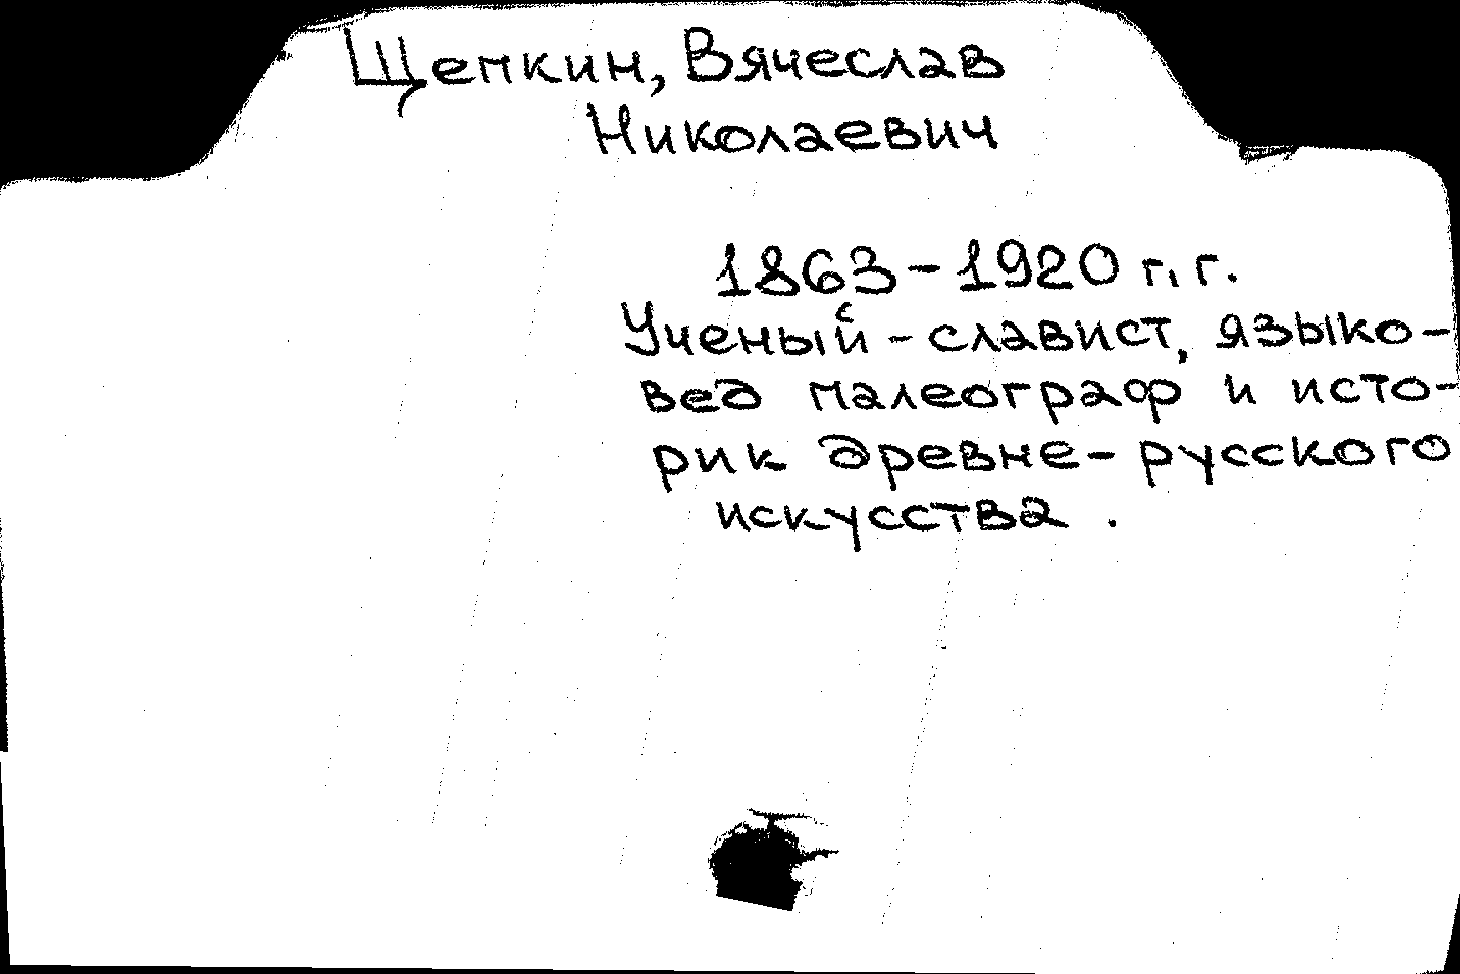 Щепкин, Вячеслав
Николаевич
1863-1920 г.г.
Ученый - славист, языко-
вед палеограф и исто-
рик древне-русского
искусства.